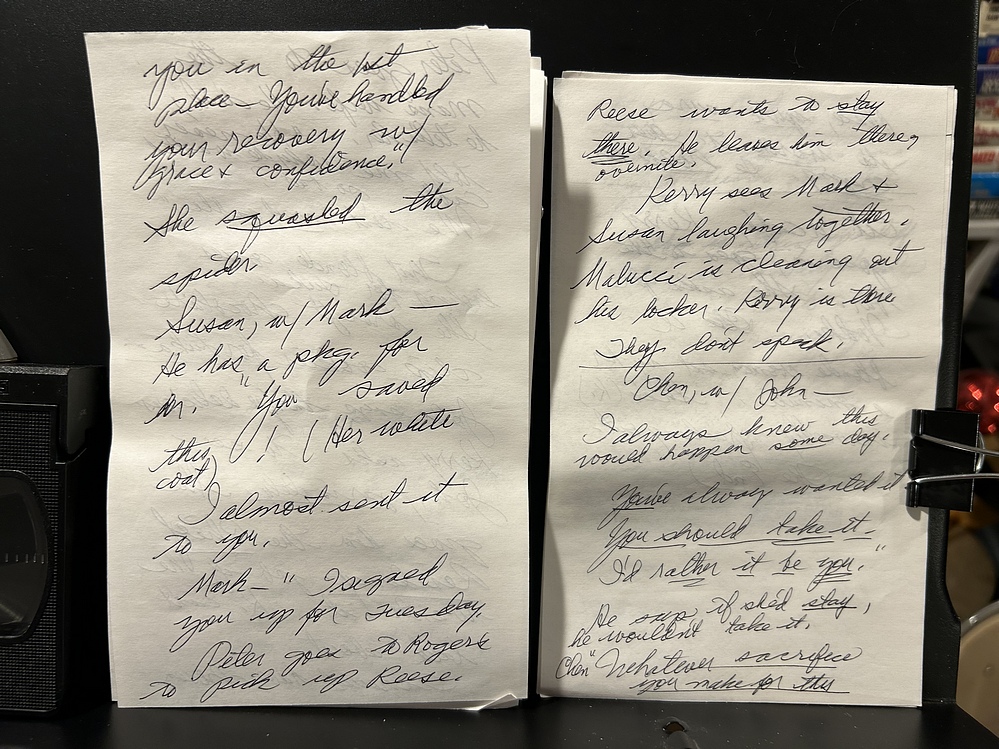 you in the 1st
place – You've handled
your recovery w/
grace + confidence."
She squashed the
spider.
Susan, w/ Mark —
He has a pkg. for
her. "You saved
this ! (Her white
coat)
I almost sent it
to you.
Mark – "I signed
you up for Tuesday.
Peter goes to Roger's
to pick up Reese.
Reese wants to stay
there. He leaves him there,
overnite.
Kerry sees Mark +
Susan laughing together.
Malucci is cleaning out
his locker. Kerry is there
They don't speak.
Chen, w/ John —
I always knew this
would happen some day.
You've always wanted it
You should take it.
I'd rather it be you."
He says if she'd stay,
he wouldn't take it.
Chen "Whatever sacrifice
you make for this